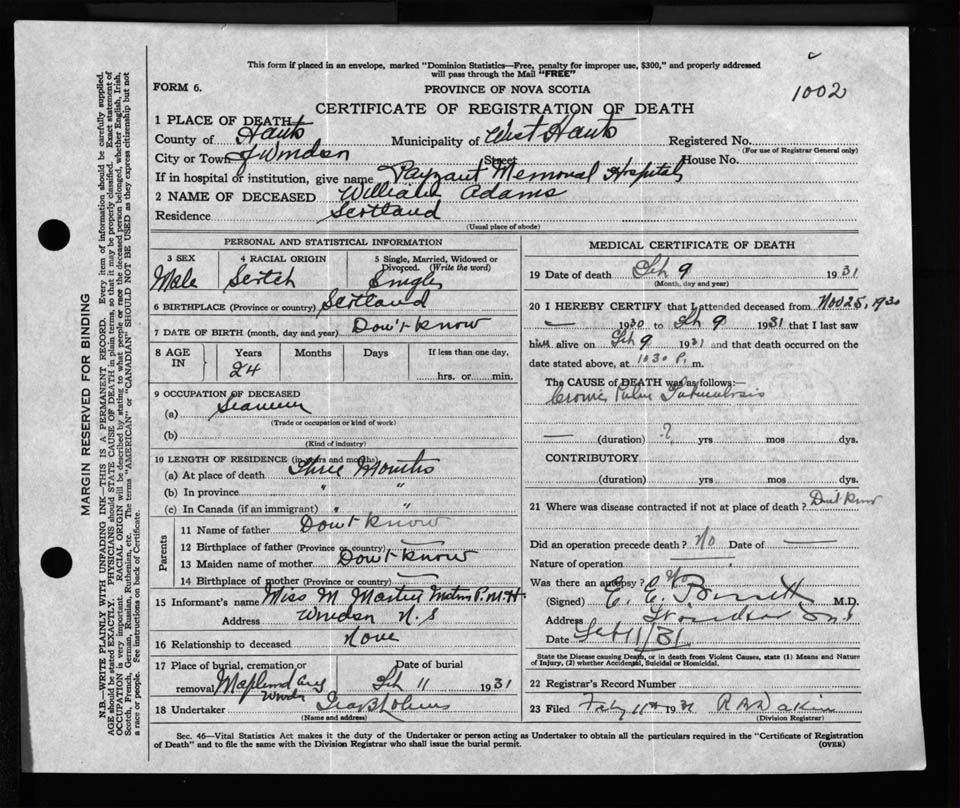 This form if placed in an envelope, marked "Dominion Statistics—Free, penalty for improper use, $300," and properly addressed
will pass through the Mail "FREE"
1002
FORM 6.
PROVINCE OF NOVA SCOTIA
CERTIFICATE OF REGISTRATION OF DEATH
1 PLACE OF DEATH
County of Hants Municipality of West Hants Registered No.
(For use of Registrar General only)
City or Town of Windsor Street House No.
If in hospital or institution, give name Payzant Memorial Hospital
2 NAME OF DECEASED William Adams
Residence Scotland
(Usual place of abode)
PERSONAL AND STATISTICAL INFORMATION
3 SEX 4 RACIAL ORIGIN 5 Single, Married, Widowed or Divorced. (Write the word)
Male Scotch Single
6 BIRTHPLACE (Province or country) Scotland
7 DATE OF BIRTH (month, day and year) Don't know
8 AGE IN Years Months Days If less than one day,
24 hrs. or min.
9 OCCUPATION OF DECEASED
(a) Seaman
(Trade or occupation or kind of work)
(b)
(Kind of industry)
10 LENGTH OF RESIDENCE (in years and months)
(a) At place of death Three Months
(b) In province " "
(c) In Canada (if an immigrant) " "
Parents
11 Name of father Don't know
12 Birthplace of father (Province or country) —
13 Maiden name of mother Don't know
14 Birthplace of mother (Province or country) —
15 Informant's name Miss M. Matron P.M.H.
Address Windsor N.S
16 Relationship to deceased None
17 Place of burial, cremation or removal Date of burial
Windsor Feb 11 1931
18 Undertaker
(Name and address)
MEDICAL CERTIFICATE OF DEATH
19 Date of death Feb 9 1931
(Month, day and year)
20 I HEREBY CERTIFY that I attended deceased from Nov 25, 1930
— 1930 to Feb 9 1931 that I last saw
him alive on Feb 9 1931 and that death occurred on the
date stated above, at 10 30 P. m.
The CAUSE of DEATH was as follows:—
Tuberculosis
— (duration) ? yrs mos dys.
CONTRIBUTORY
(duration) yrs mos dys.
21 Where was disease contracted if not at place of death? Don't know
Did an operation precede death? No Date of —
Nature of operation
Was there an autopsy? No
(Signed) M.D.
Address Windsor N.S
Date Feb 11/31
State the Disease causing Death, or in death from Violent Causes, state (1) Means and Nature
of Injury, (2) whether Accidental, Suicidal or Homicidal.
22 Registrar's Record Number
23 Filed Feb 11th 1931
(Division Registrar)
Sec. 46—Vital Statistics Act makes it the duty of the Undertaker or person acting as Undertaker to obtain all the particulars required in the "Certificate of Registration
of Death" and to file the same with the Division Registrar who shall issue the burial permit. (OVER)
MARGIN RESERVED FOR BINDING
N.B.—WRITE PLAINLY WITH UNFADING INK—THIS IS A PERMANENT RECORD. Every item of information should be carefully supplied.
AGE should be stated EXACTLY. PHYSICIANS should STATE CAUSE OF DEATH in plain terms, so that it may be properly classified. Exact statement of
OCCUPATION is very important. RACIAL ORIGIN will be described by stating to what people or race the deceased person belonged, whether English, Irish,
Scotch, French, German, Russian, Ruthenian, etc. The terms "AMERICAN" or "CANADIAN" SHOULD NOT BE USED as they express citizenship but not
a race or people. See instructions on back of Certificate.